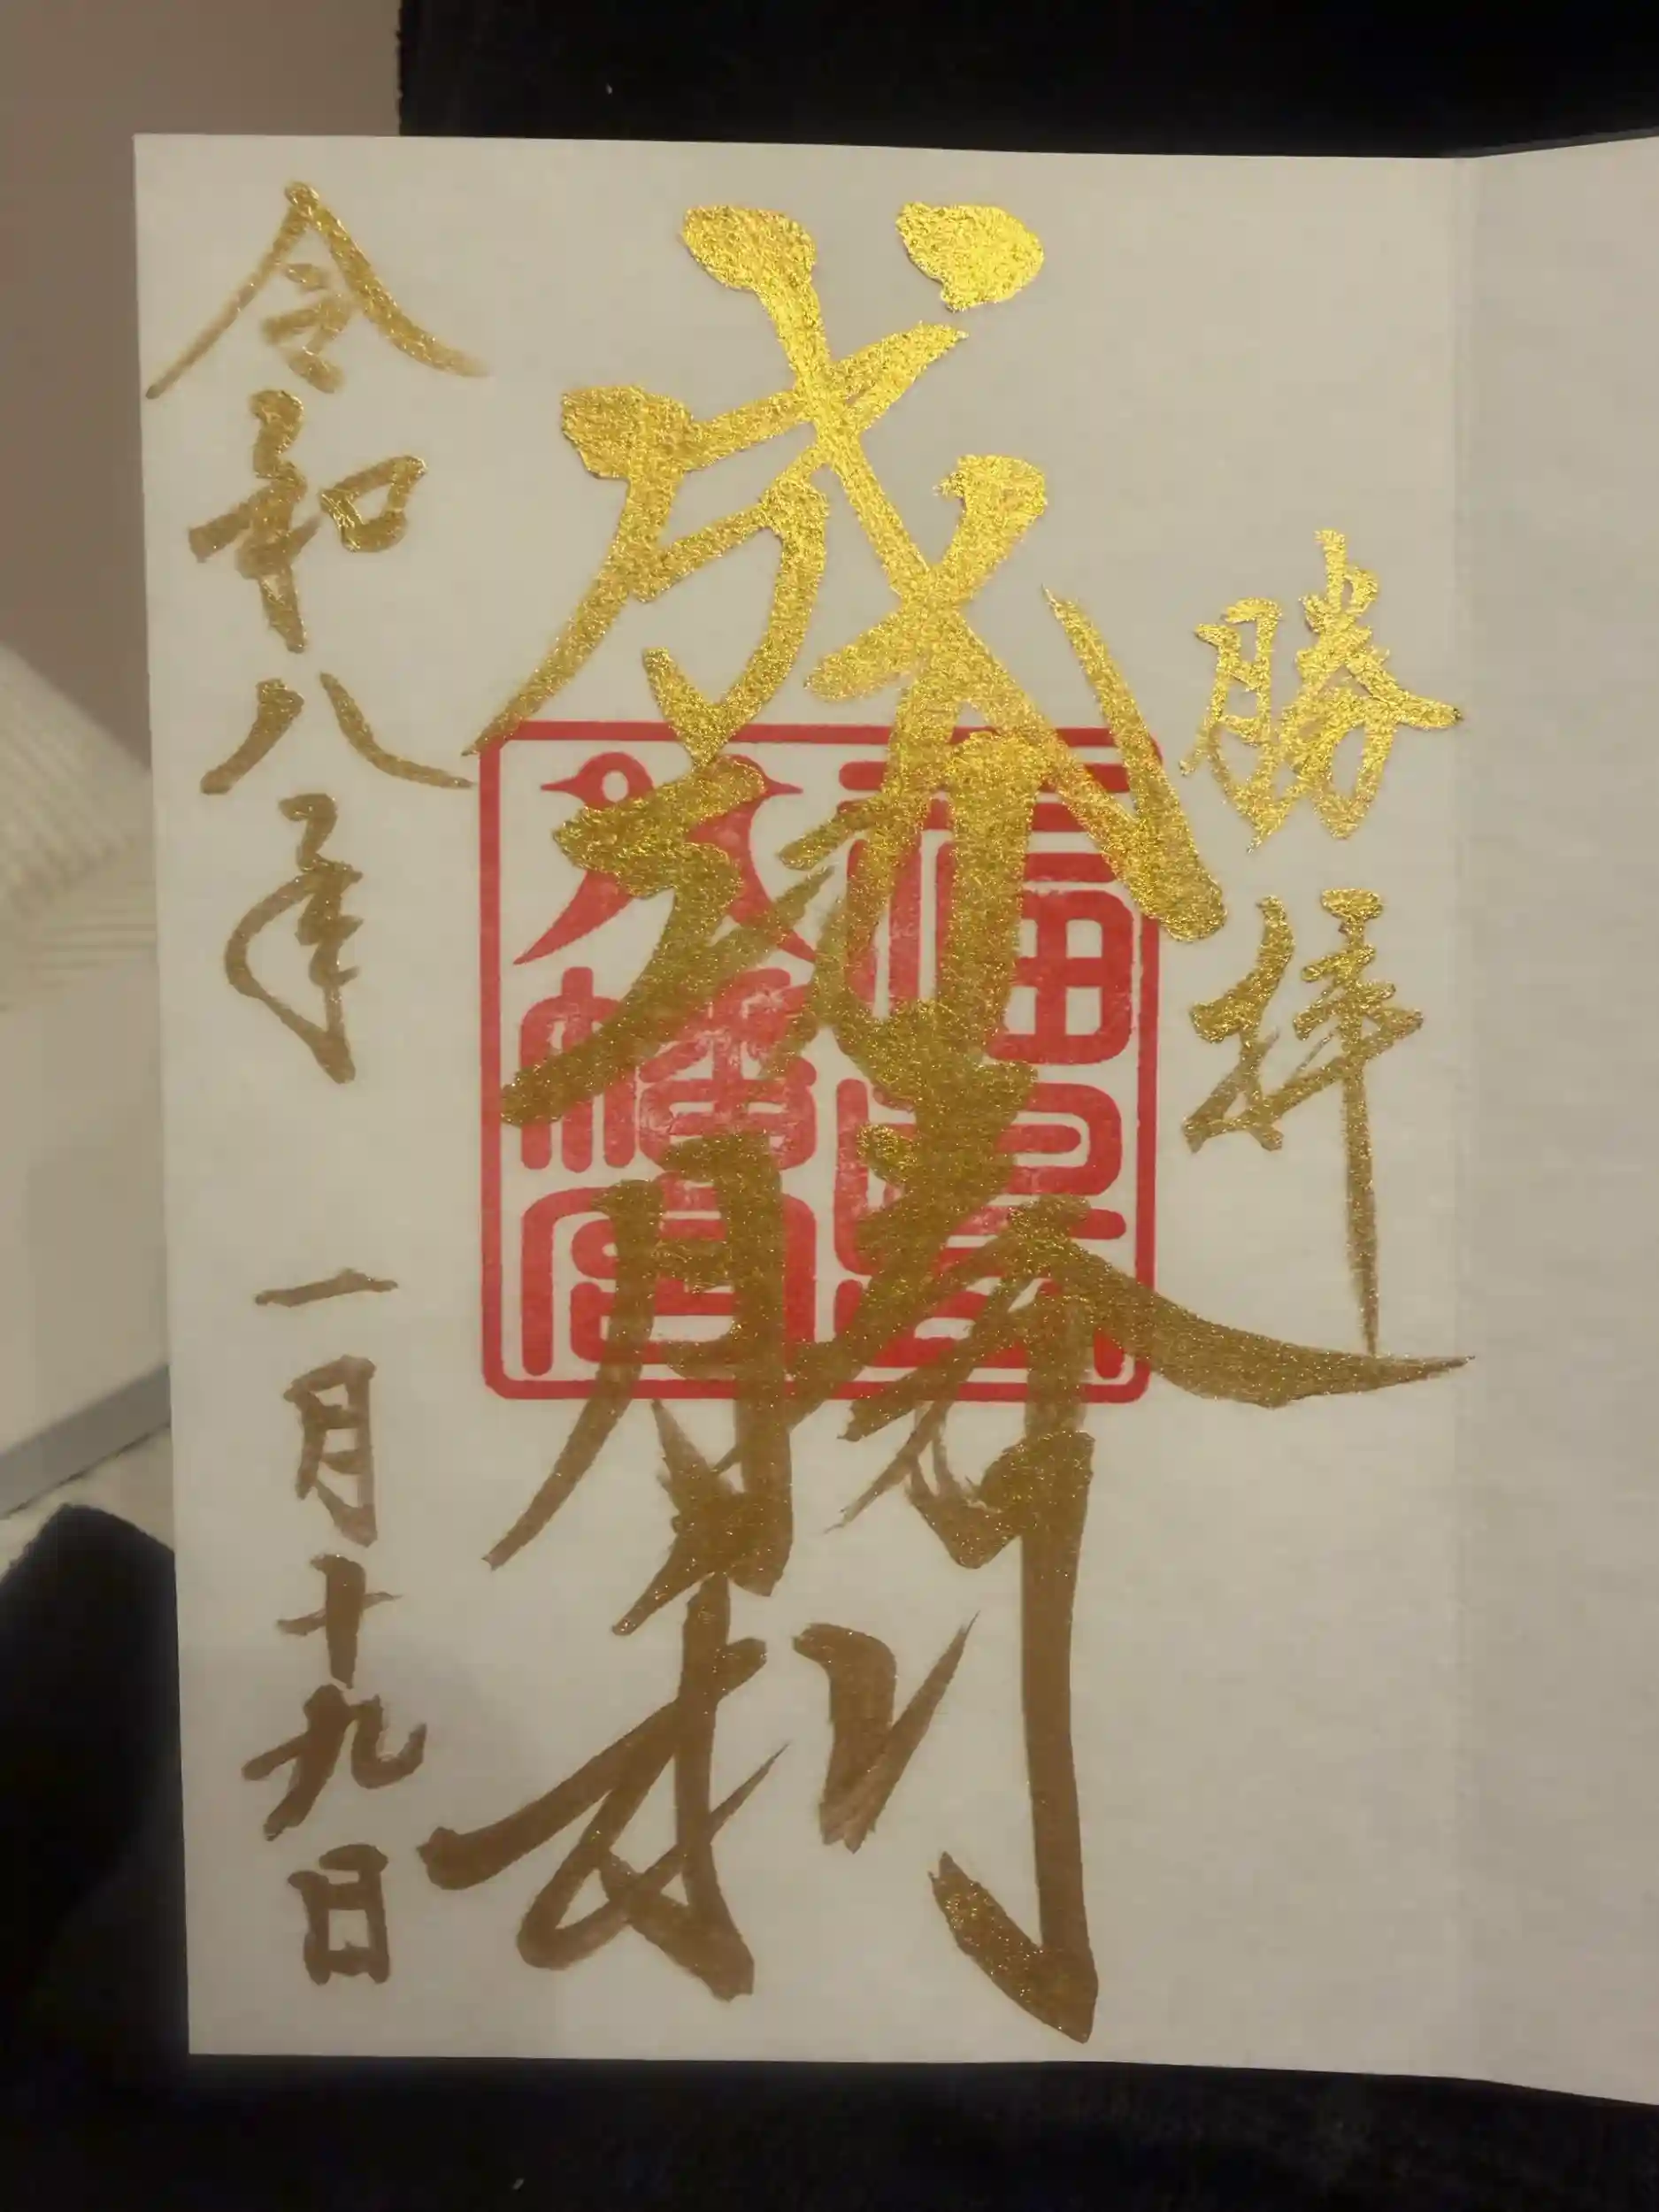 勝拝
成功勝利
八幡宮
令和八年
一月十九日